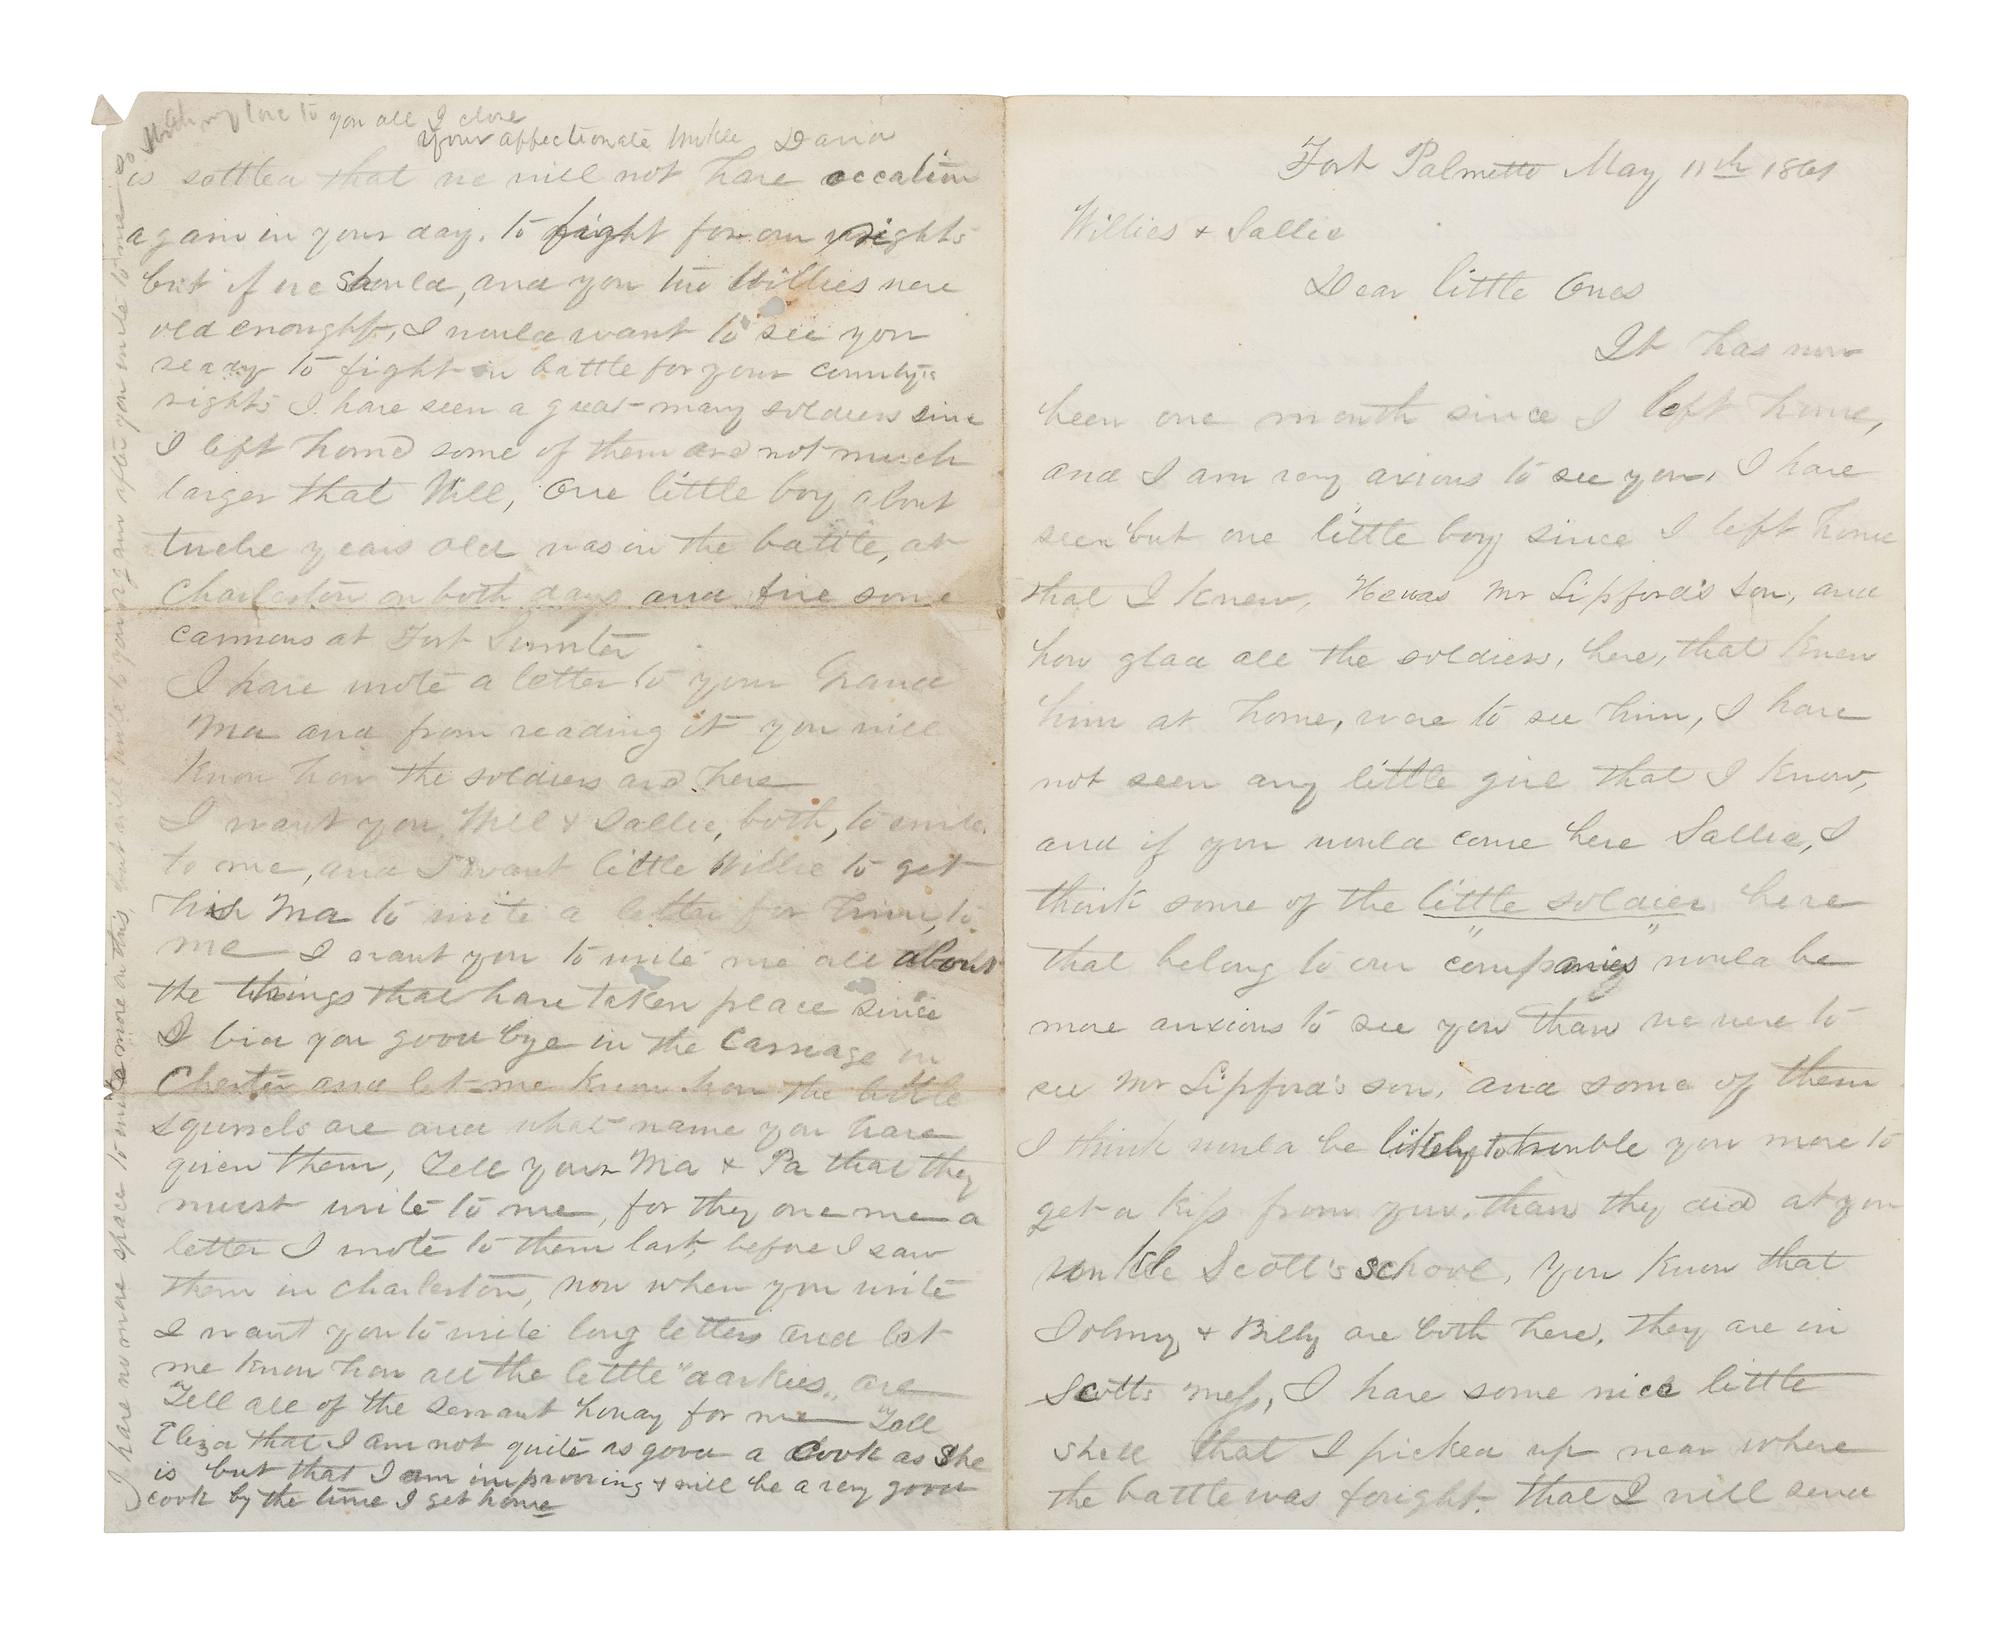 Fort Palmetto May 11th 1861
Willies & Sallie
Dear little Ones
It has now
been one month since I left home,
and I am very axious to see you, I have
seen but one little boy since I left home
that I knew, He was Mr Lipford's son, and
how glad all the soldiers, here, that knew
him at home, were to see him, I have
not seen any little girl that I know,
and if you would come here Sallie, I
think some of the little soldier here
that belong to our "companies" would be
more anxious to see you than we were to
see Mr Lipford's son, and some of them
I think would be likely to trouble you more to
get a kiss from you, than they did at yon
unkle Scott's school, You know that
Johny & Billy are both here, they are in
Scotts mess, I have some nice little
shell that I picked up near where
the battle was fought, that I will send
With my love to you all I close
your affectionate Unkle David
is settled that we will not have occation
again in your day, to fight for our rights
but if we should, and you two Willies were
old enought, I would want to see you
ready to fight in battle for your countys
rights I have seen a great many soldiers since
I left home some of them are not much
larger that Will, One little boy about
twelve years old was in the battle, at
Charleston on both days and fire some
cannons at Fort Sumter
I have wrote a letter to your Grand
Ma and from reading it you will
know how the soldiers are here
I want you, Will & Sallie, both, to write
to me, and I want little Willie to get
his Ma to write a letter for him, to
me I want you to write me all about
the things that have taken place since
I bid you good bye in the Carriage in
Chester and let me know how the little
squirrels are and what name you have
given them, Tell your Ma & Pa that they
must write to me, for they owe me a
letter I wrote to them last, before I saw
them in Charleston, now when you write
I want you to write long letters and let
me know how all the little "darkies" are
Tell all of the servant howdy for me Tell
Eliza that I am not quite as good a cook as she
is but that I am improoving & will be a very good
cook by the time I get home
I have no more space to write more on this, but will write to you again after you write to me so